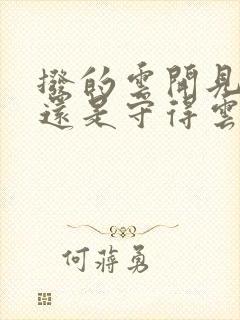 撥的雲開見
還是守得雲
何蔣勇